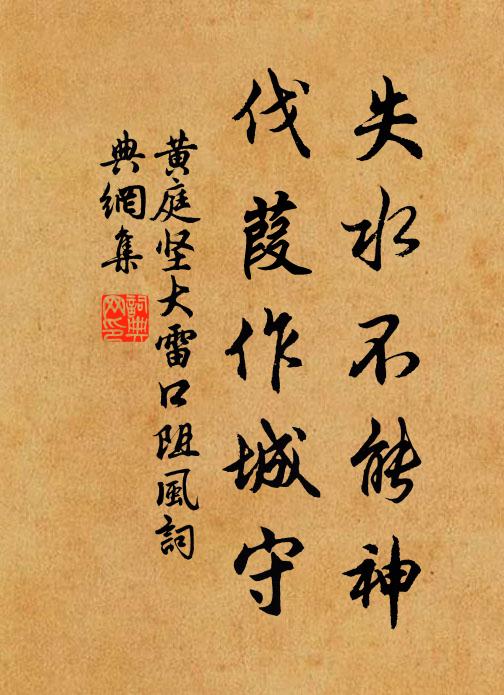 失水不能神
伐葭作城守
黄庭坚大雷口阻风詞
典網集
詞典
网印